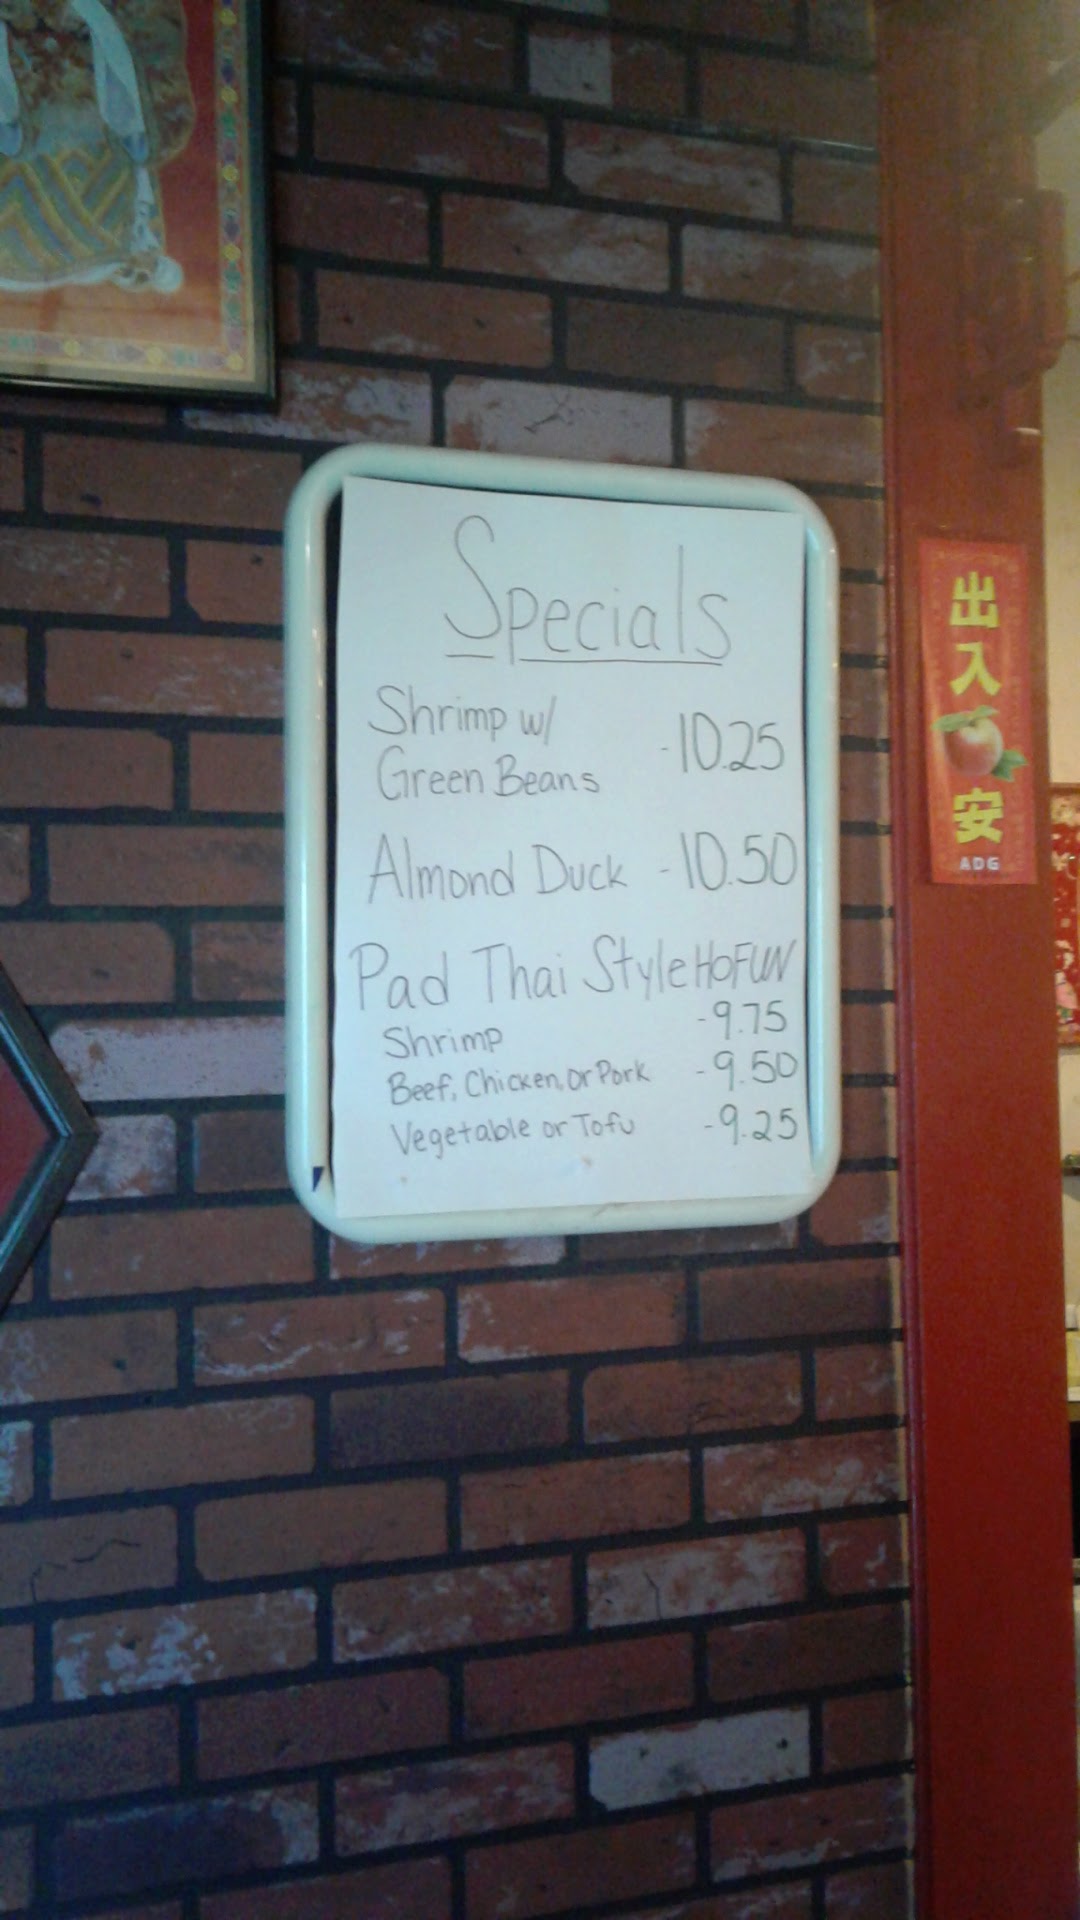 Specials
Shrimp w/
Green Beans - 10.25
Almond Duck - 10.50
Pad Thai Style HoFUN
Shrimp - 9.75
Beef, Chicken, or Pork - 9.50
Vegetable or Tofu - 9.25
出
入
安
ADG